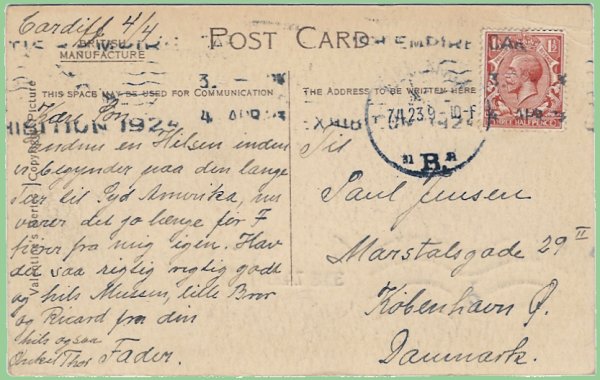 Cardiff 4/4
POST CARD
BRITISH
MANUFACTURE
THIS SPACE MAY BE USED FOR COMMUNICATION
THE ADDRESS TO BE WRITTEN HERE
TISH EMPIRE
3. -
4 APR
EXHIBITION 1924
Kære
Endnu en Hilsen inden
vi begynder paa den lange
Tur til Syd Amerika, nu
varer det jo længe før I
hører fra mig igen. Hav
det saa rigtig rigtig godt
og hils Mussen, lille Bror
og Ricard fra den
hils ogsaa
Onkel Thor Fader.
Valentine's Series Copyright Picture
Til
Paul Jensen
Marstalsgade 29 II
København Ø.
Danmark.
7.4.23 9 10-F
B.
EMPIRE
CAR
EXHIBITION 1924
THREE HALFPENCE